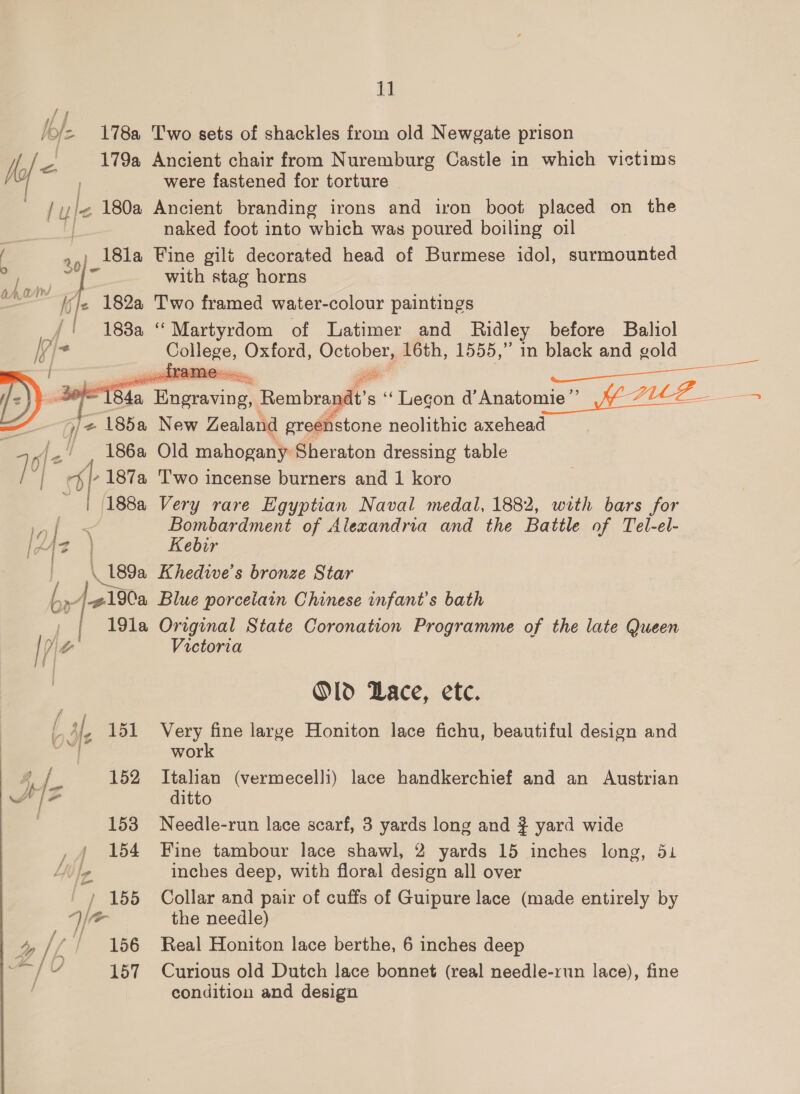 11
178a Two sets of shackles from old Newgate prison
179a Ancient chair from Nuremburg Castle in which victims
were fastened for torture
180a Ancient branding irons and iron boot placed on the
naked foot into which was poured boiling oil
181a Fine gilt decorated head of Burmese idol, surmounted
with stag horns
182a Two framed water-colour paintings
183a “Martyrdom of Latimer and Ridley before Baliol
College, Oxford, October, 16th, 1555,” in black and gold
frame
184a Engraving, Rembrandt’s “Leçon d’Anatomie”
185a New Zealand greenstone neolithic axehead
186a Old mahogany Sheraton dressing table
187a Two incense burners and 1 koro
188a Very rare Egyptian Naval medal, 1882, with bars for
Bombardment of Alexandria and the Battle of Tel-el-
Kebir
189a Khedive’s bronze Star
190a Blue porcelain Chinese infant’s bath
191a Original State Coronation Programme of the late Queen
Victoria
Old Lace, etc.
151 Very fine large Honiton lace fichu, beautiful design and
work
152 Italian (vermecelli) lace handkerchief and an Austrian
ditto
153 Needle-run lace scarf, 3 yards long and ¾ yard wide
154 Fine tambour lace shawl, 2 yards 15 inches long, 51
inches deep, with floral design all over
155 Collar and pair of cuffs of Guipure lace (made entirely by
the needle)
156 Real Honiton lace berthe, 6 inches deep
157 Curious old Dutch lace bonnet (real needle-run lace), fine
condition and design